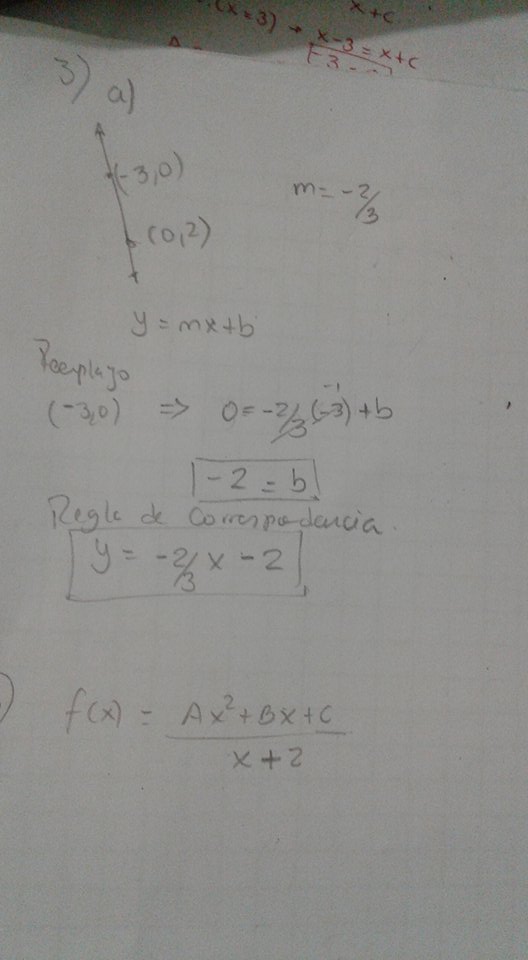 (x=3) → x-3 = x+c
x+c
3) a)
(-3,0)
m = -2/3
(0,2)
y = mx+b
Reemplazo
(-3,0) => 0 = -2/3 (-3) + b
-1
-2 = b
Regla de Correspondencia.
y = -2/3 x - 2
f(x) = Ax²+Bx+C
x+2